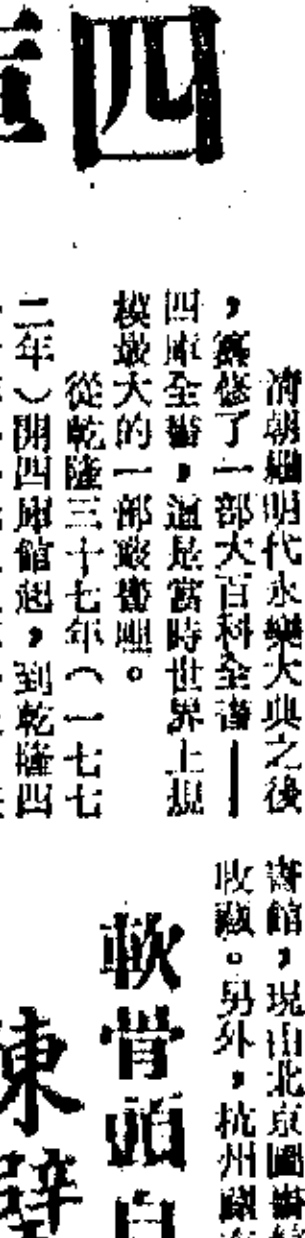 四
清朝繼明代永樂大典之後
，纂修了一部大百科全書——
四庫全書，這是當時世界上規
模最大的一部叢書哩。
從乾隆三十七年（一七七
二年）開四庫館起，到乾隆四
書館，現由北京圖書館
收藏。另外，杭州
軟骨頭
東